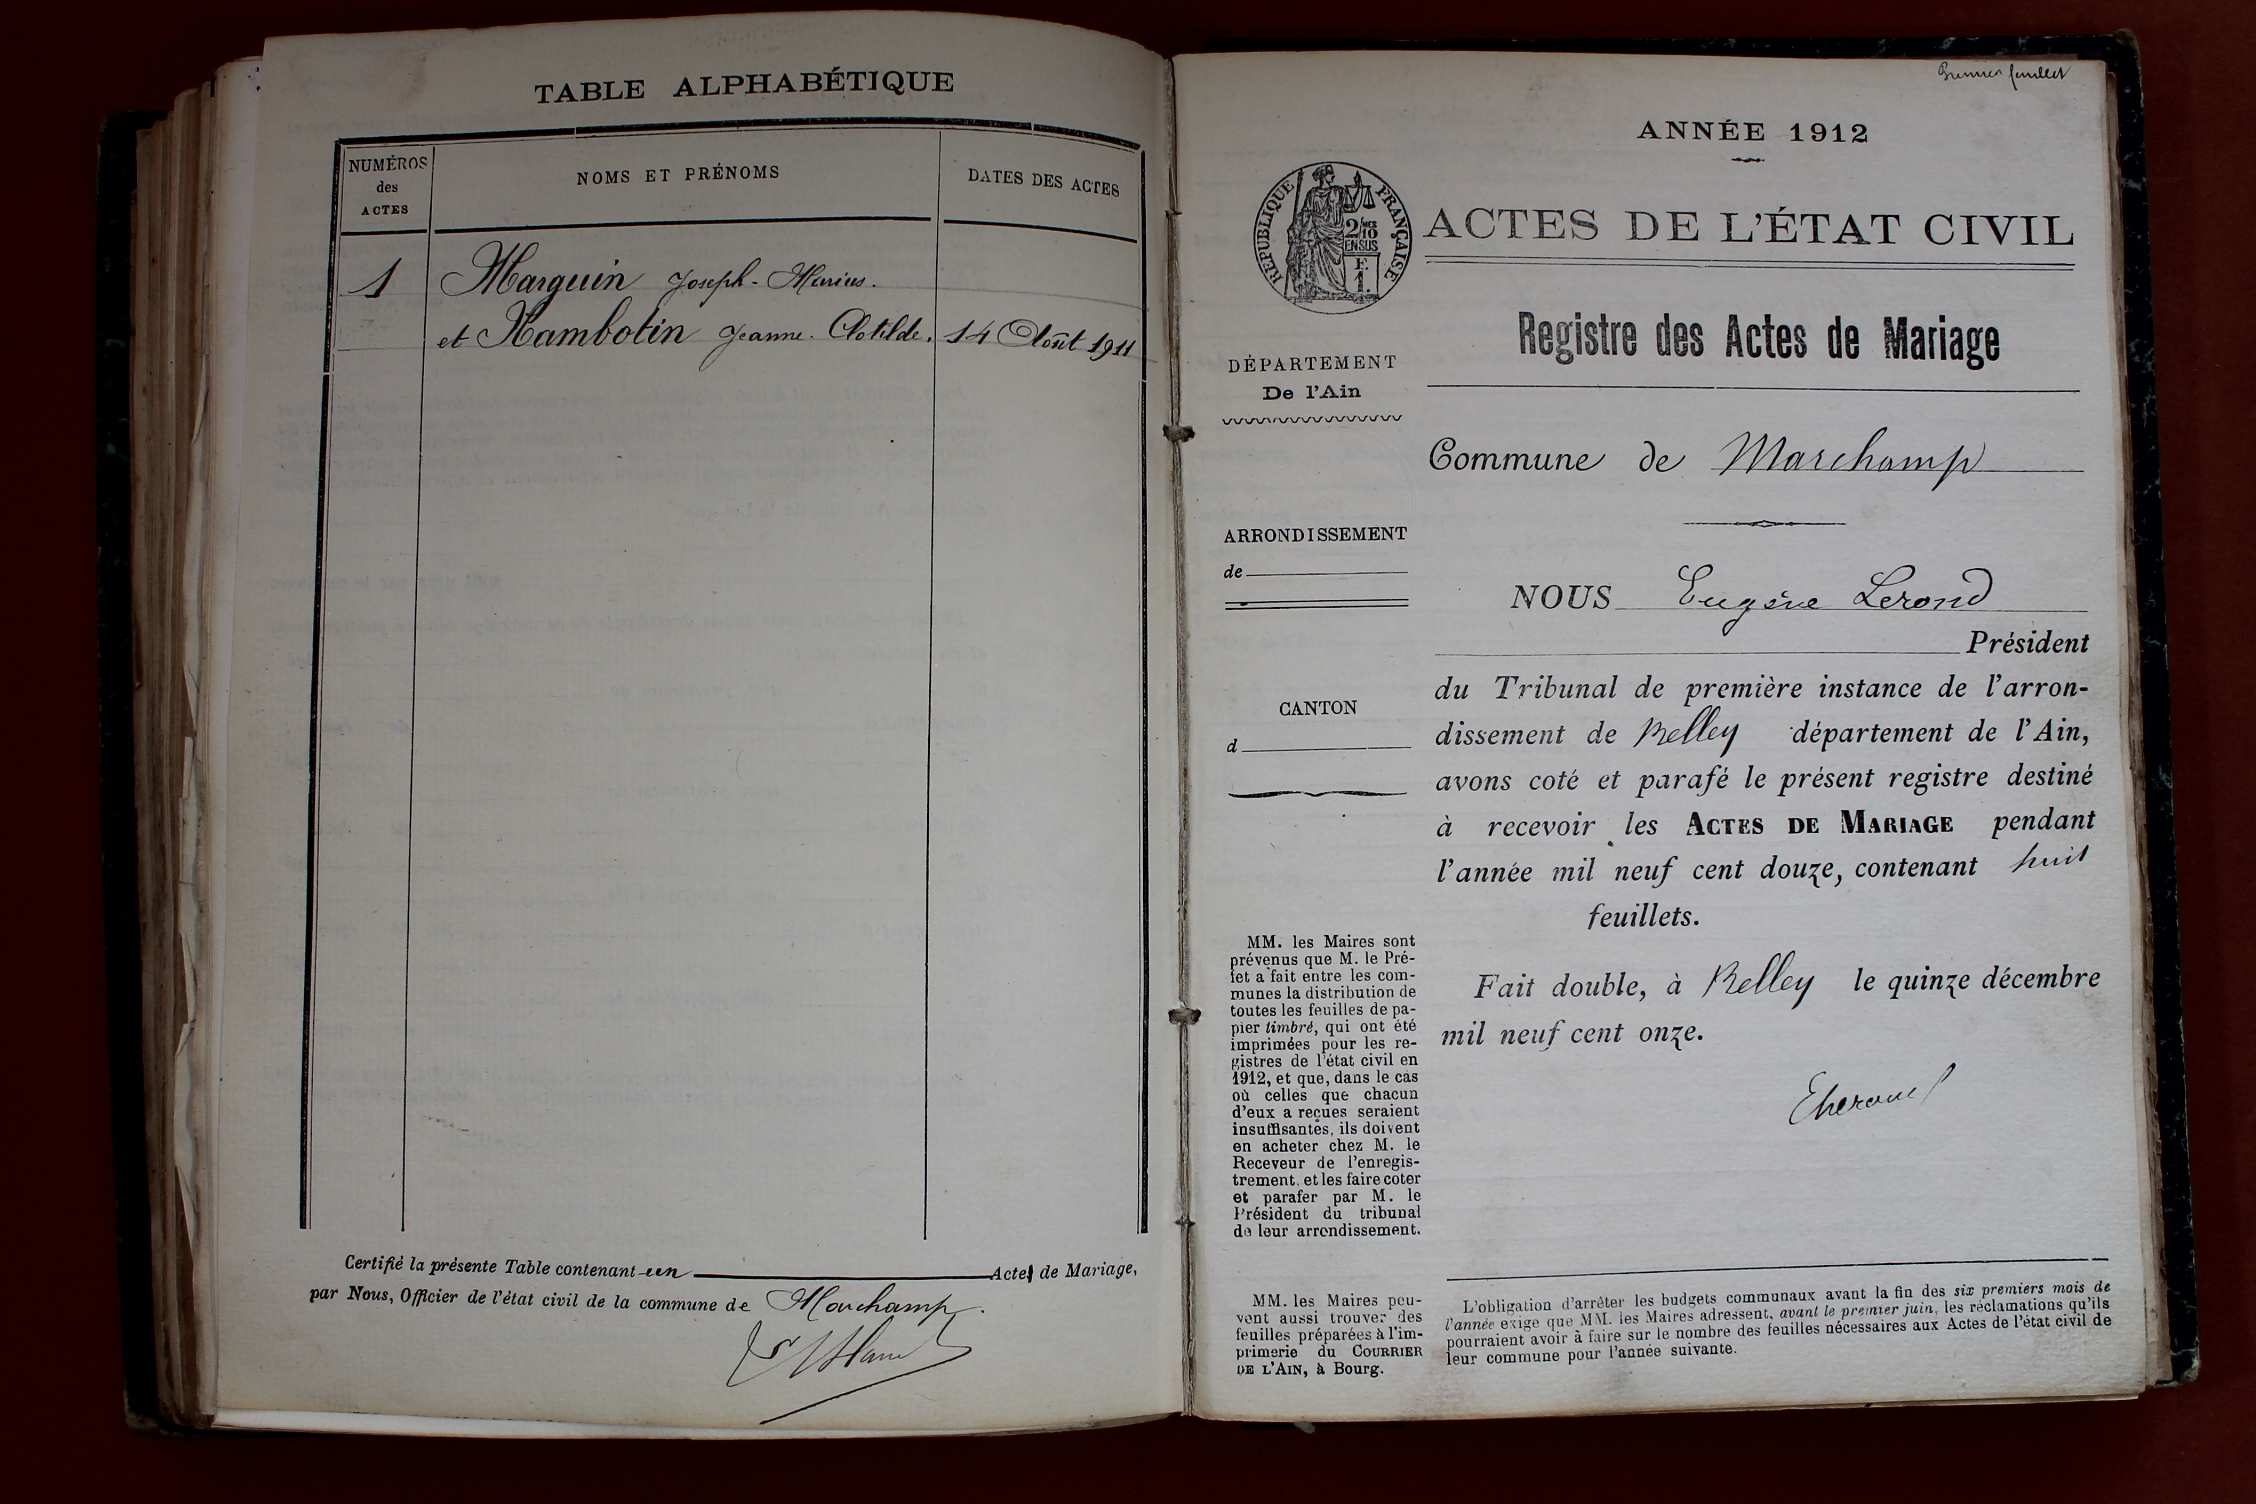 TABLE ALPHABÉTIQUE
NUMÉROS
des
ACTES
NOMS ET PRÉNOMS
DATES DES ACTES
1
Marguin Joseph-Marius.
et Rambotin Jeanne-Clotilde. 14 Août 1911
Certifié la présente Table contenant un Acte de Mariage,
par Nous, Officier de l'état civil de la commune de Marchamp.
Premier feuillet
ANNÉE 1912
RÉPUBLIQUE FRANÇAISE
2/10
EN SUS
E.
1.
ACTES DE L'ÉTAT CIVIL
Registre des Actes de Mariage
DÉPARTEMENT
De l'Ain
Commune de Marchamp
ARRONDISSEMENT
de
CANTON
d
NOUS Eugène Lerond
Président
du Tribunal de première instance de l'arron-
dissement de Belley département de l'Ain,
avons coté et parafé le présent registre destiné
à recevoir les ACTES DE MARIAGE pendant
l'année mil neuf cent douze, contenant huit
feuillets.
Fait double, à Belley le quinze décembre
mil neuf cent onze.
MM. les Maires sont
prévenus que M. le Pré-
fet a fait entre les com-
munes la distribution de
toutes les feuilles de pa-
pier timbré, qui ont été
imprimées pour les re-
gistres de l'état civil en
1912, et que, dans le cas
où celles que chacun
d'eux a reçues seraient
insuffisantes, ils doivent
en acheter chez M. le
Receveur de l'enregis-
trement, et les faire coter
et parafer par M. le
Président du tribunal
de leur arrondissement.
MM. les Maires peu-
vent aussi trouver des
feuilles préparées à l'im-
primerie du COURRIER
DE L'AIN, à Bourg.
L'obligation d'arrêter les budgets communaux avant la fin des six premiers mois de
l'année exige que MM. les Maires adressent, avant le premier juin, les réclamations qu'ils
pourraient avoir à faire sur le nombre des feuilles nécessaires aux Actes de l'état civil de
leur commune pour l'année suivante.